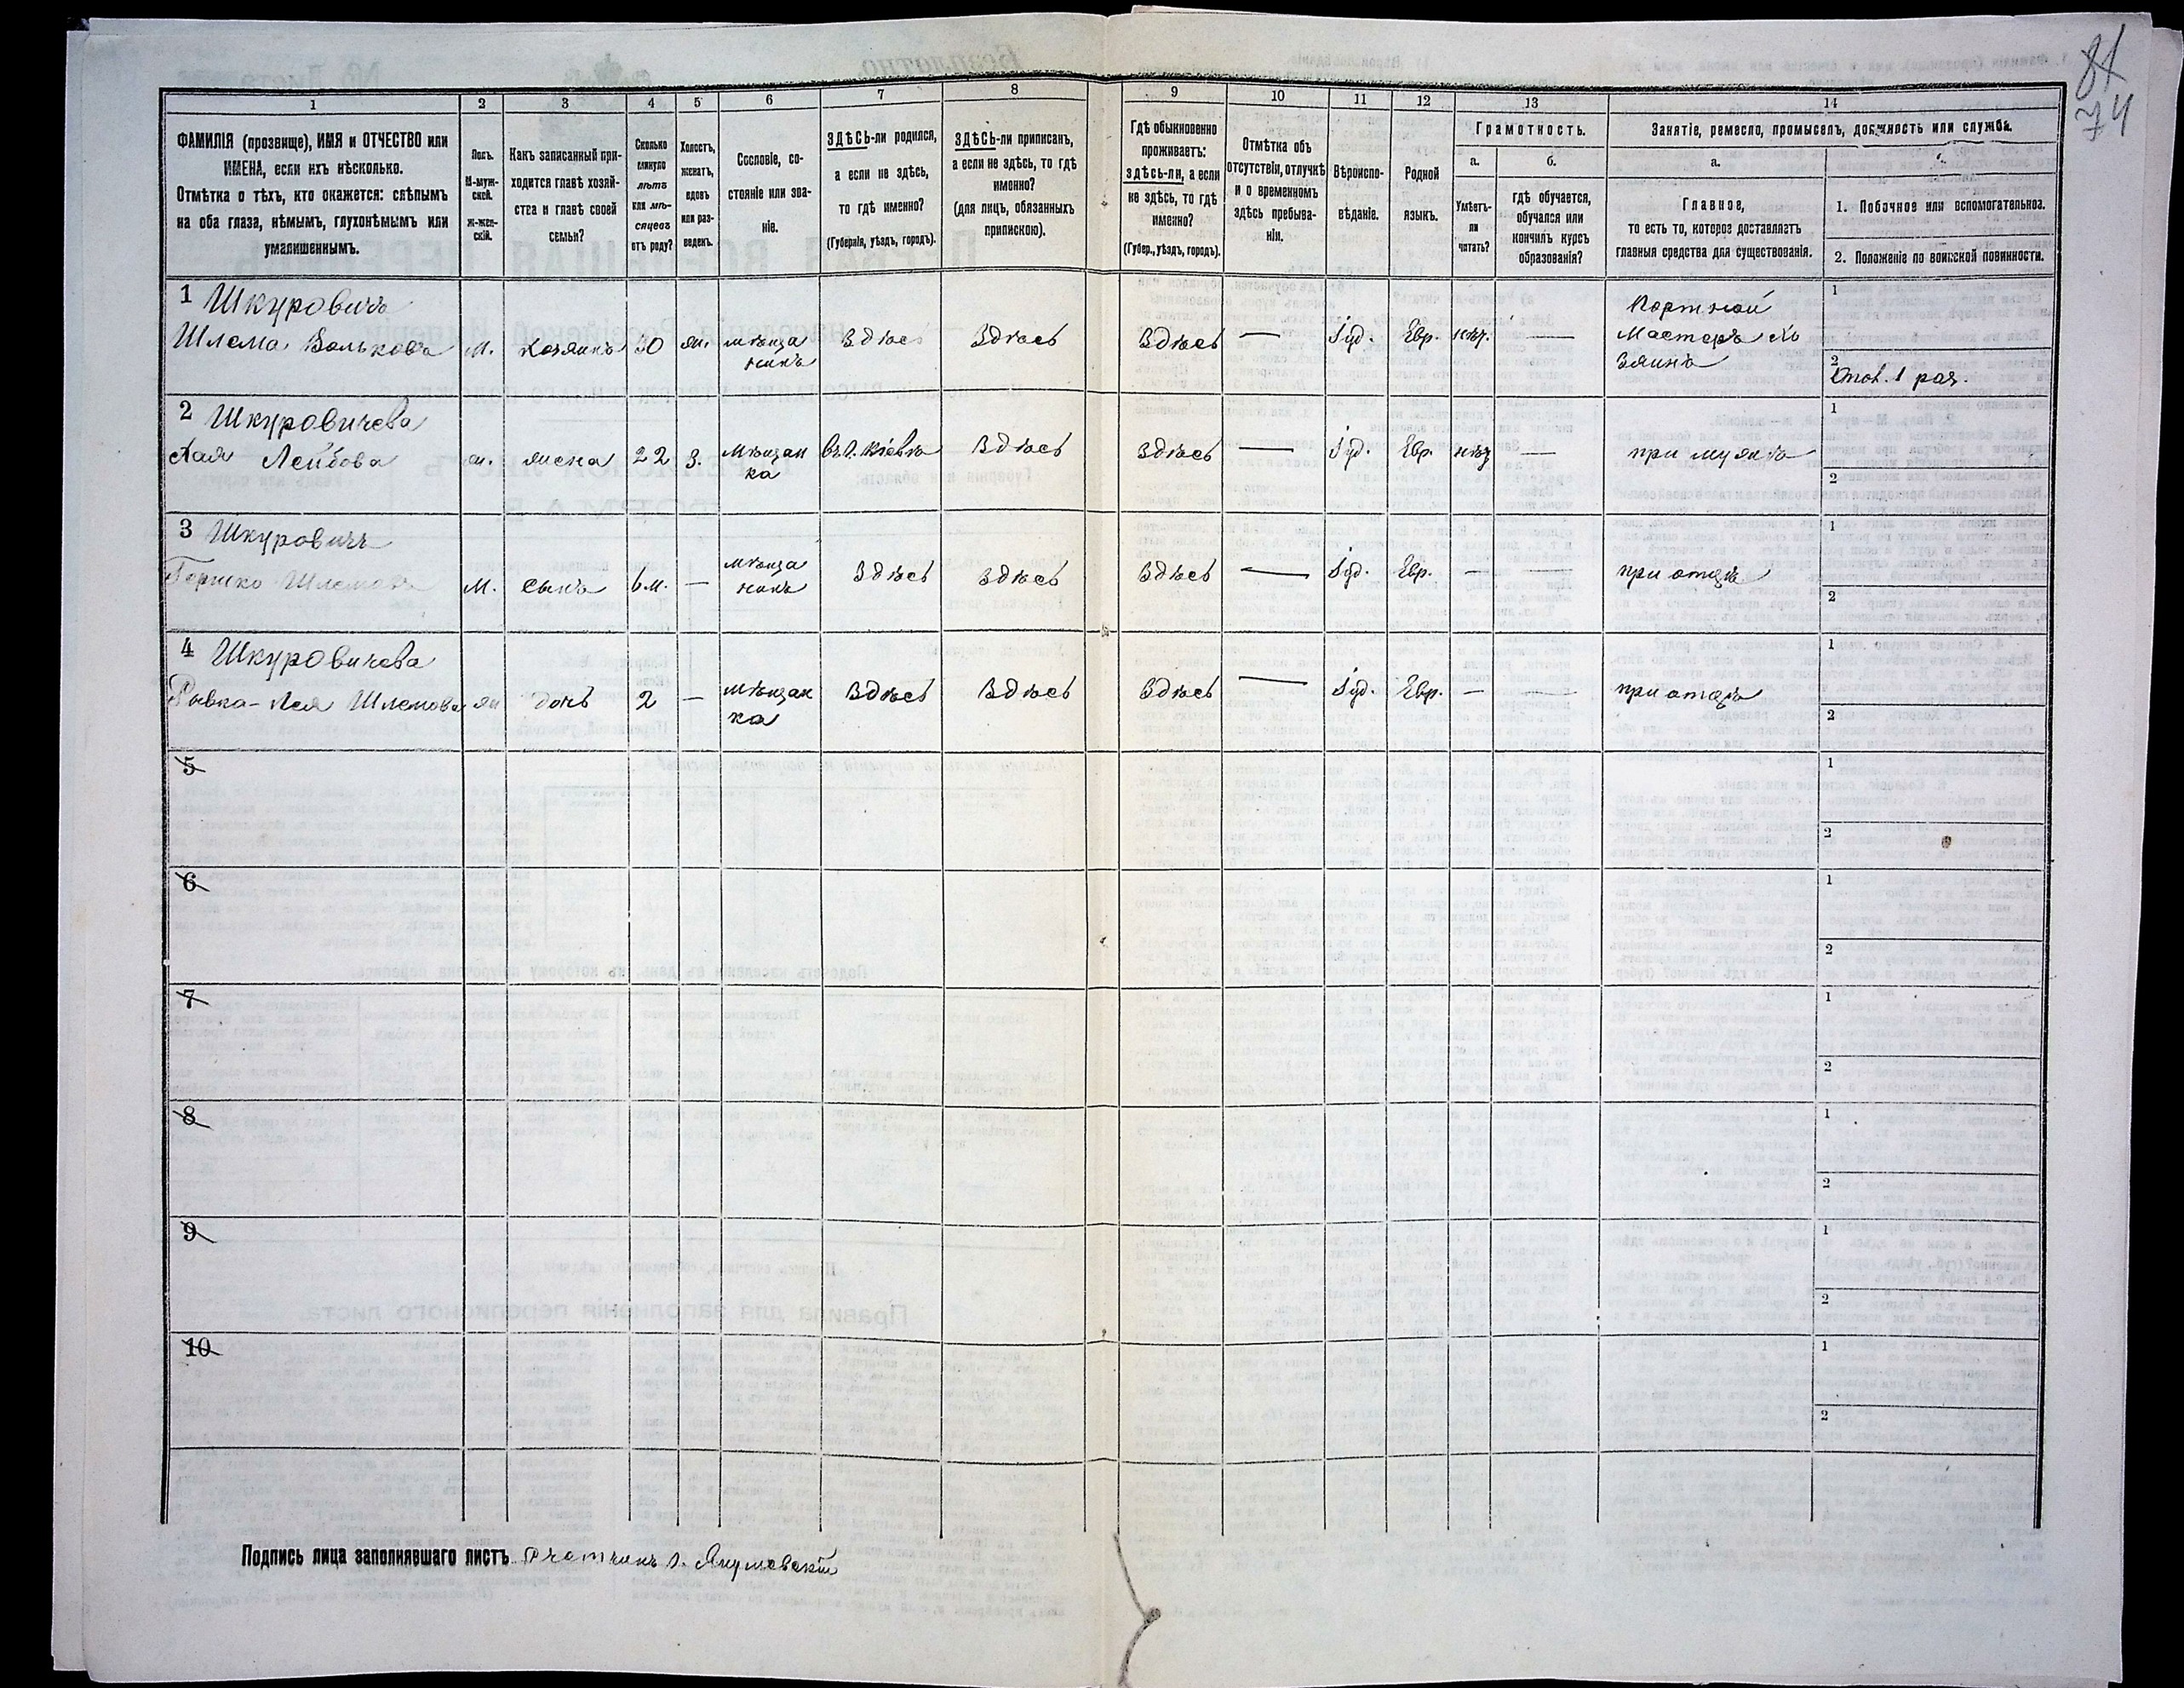 81
74
1
2
3
4
5
6
7
8
9
10
11
12
13
14
ФАМИЛІЯ (прозвище), ИМЯ и ОТЧЕСТВО или
ИМЕНА, если ихъ нѣсколько.
Отмѣтка о тѣхъ, кто окажется: слѣпымъ
на оба глаза, нѣмымъ, глухонѣмымъ или
умалишеннымъ.
Полъ.
М-муж-
ской.
Ж-жен-
скій.
Какъ записанный при-
ходится главѣ хозяй-
ства и главѣ своей
семьи?
Сколько
минуло
лѣтъ
или мѣ-
сяцевъ
отъ роду?
Холостъ,
женатъ,
вдовъ
или раз-
веденъ.
Сословіе, со-
стояніе или зва-
ніе.
ЗДѢСЬ-ли родился,
а если не здѣсь,
то гдѣ именно?
(Губернія, уѣздъ, городъ).
ЗДѢСЬ-ли приписанъ,
а если не здѣсь, то гдѣ
именно?
(для лицъ, обязанныхъ
припискою).
Гдѣ обыкновенно
проживаетъ:
здѣсь-ли, а если
не здѣсь, то гдѣ
именно?
(Губер., уѣздъ, городъ).
Отмѣтка объ
отсутствіи, отлучкѣ
и о временномъ
здѣсь пребыва-
ніи.
Вѣроиспо-
вѣданіе.
Родной
языкъ.
Грамотность.
а.
б.
Умѣетъ-
ли
читать?
гдѣ обучается,
обучался или
кончилъ курсъ
образованія?
Занятіе, ремесло, промыселъ, должность или служба.
а.
Главное,
то есть то, которое доставляетъ
главныя средства для существованія.
1. Побочное или вспомогательное.
2. Положеніе по воинской повинности.
1 Шкуровичъ
Шлема Вольковъ м. хозяинъ 30 ж. мѣща Здѣсь Здѣсь Здѣсь — Іуд. Евр. нѣт. —
нинъ
Портной
Мастеръ Хо
зяинъ
1
2
Опол. 1 раз.
2 Шкуровичева
Хая Лейбова ж. жена 22 З. Мѣщан въ г. Кіевѣ Здѣсь Здѣсь — Іуд. Евр. нѣт — при мужѣ
ка
1
2
3 Шкуровичъ
Гершко Шлемовъ М. сынъ 6 м. — мѣща Здѣсь Здѣсь Здѣсь — Іуд. Евр. — — при отцѣ
нинъ
1
2
4 Шкуровичева
Ривка-Лея Шлемова ж дочь 2 — мѣщан Здѣсь Здѣсь Здѣсь — Іуд. Евр. — — при отцѣ
ка
1
2
5
1
2
6
1
2
7
1
2
8
1
2
9
1
2
10
1
2
Подпись лица заполнявшаго листъ Счетчикъ